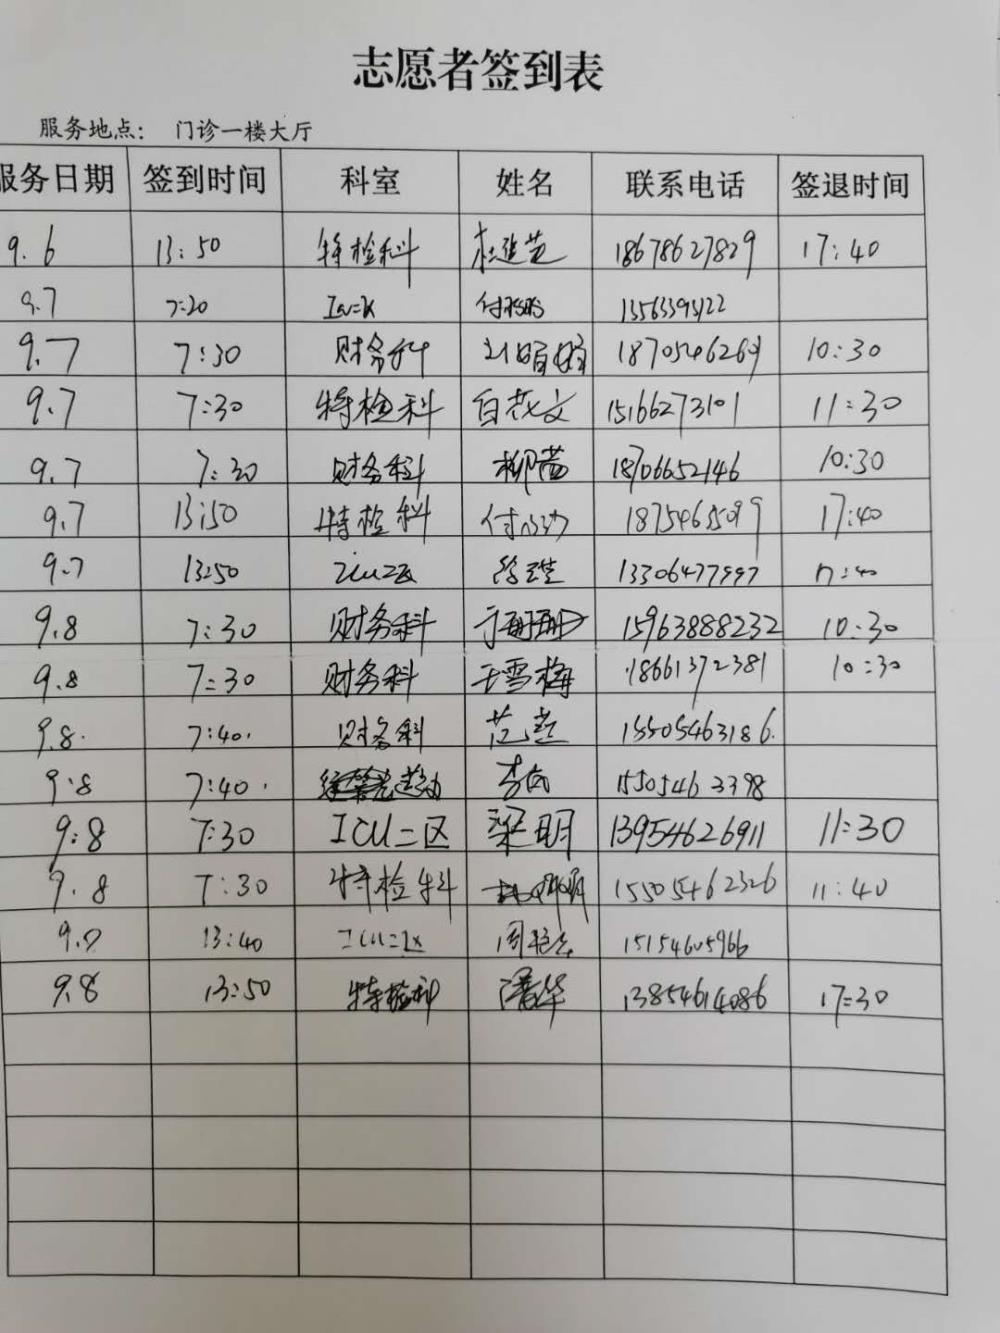 志愿者签到表
服务地点： 门诊一楼大厅
服务日期 签到时间 科室 姓名 联系电话 签退时间
9.6 13:50 特检科 杜进芝 18678627829 17:40
9.7 7:20
9.7 7:30 财务科 10:30
9.7 7:30 特检科 15166273101 11:30
9.7 7:30 财务科 18706652146 10:30
9.7 13:50 特检科 17:40
9.7 13:50 ICU二区 17:40
9.8 7:30 财务科 于珊珊 15963888232 10:30
9.8 7:30 财务科 王雪梅 18661372381 10:30
9.8. 7:40. 财务科 范燕 15505463186.
9.8 7:40. 15505463398
9:8 7:30 ICU二区 梁明 13954626911 11:30
9.8 7:30 特检科 15505462326 11:40
13:40 ICU二区 15154605966
9.8 13:50 特检科 潘华 13854614086 17:30